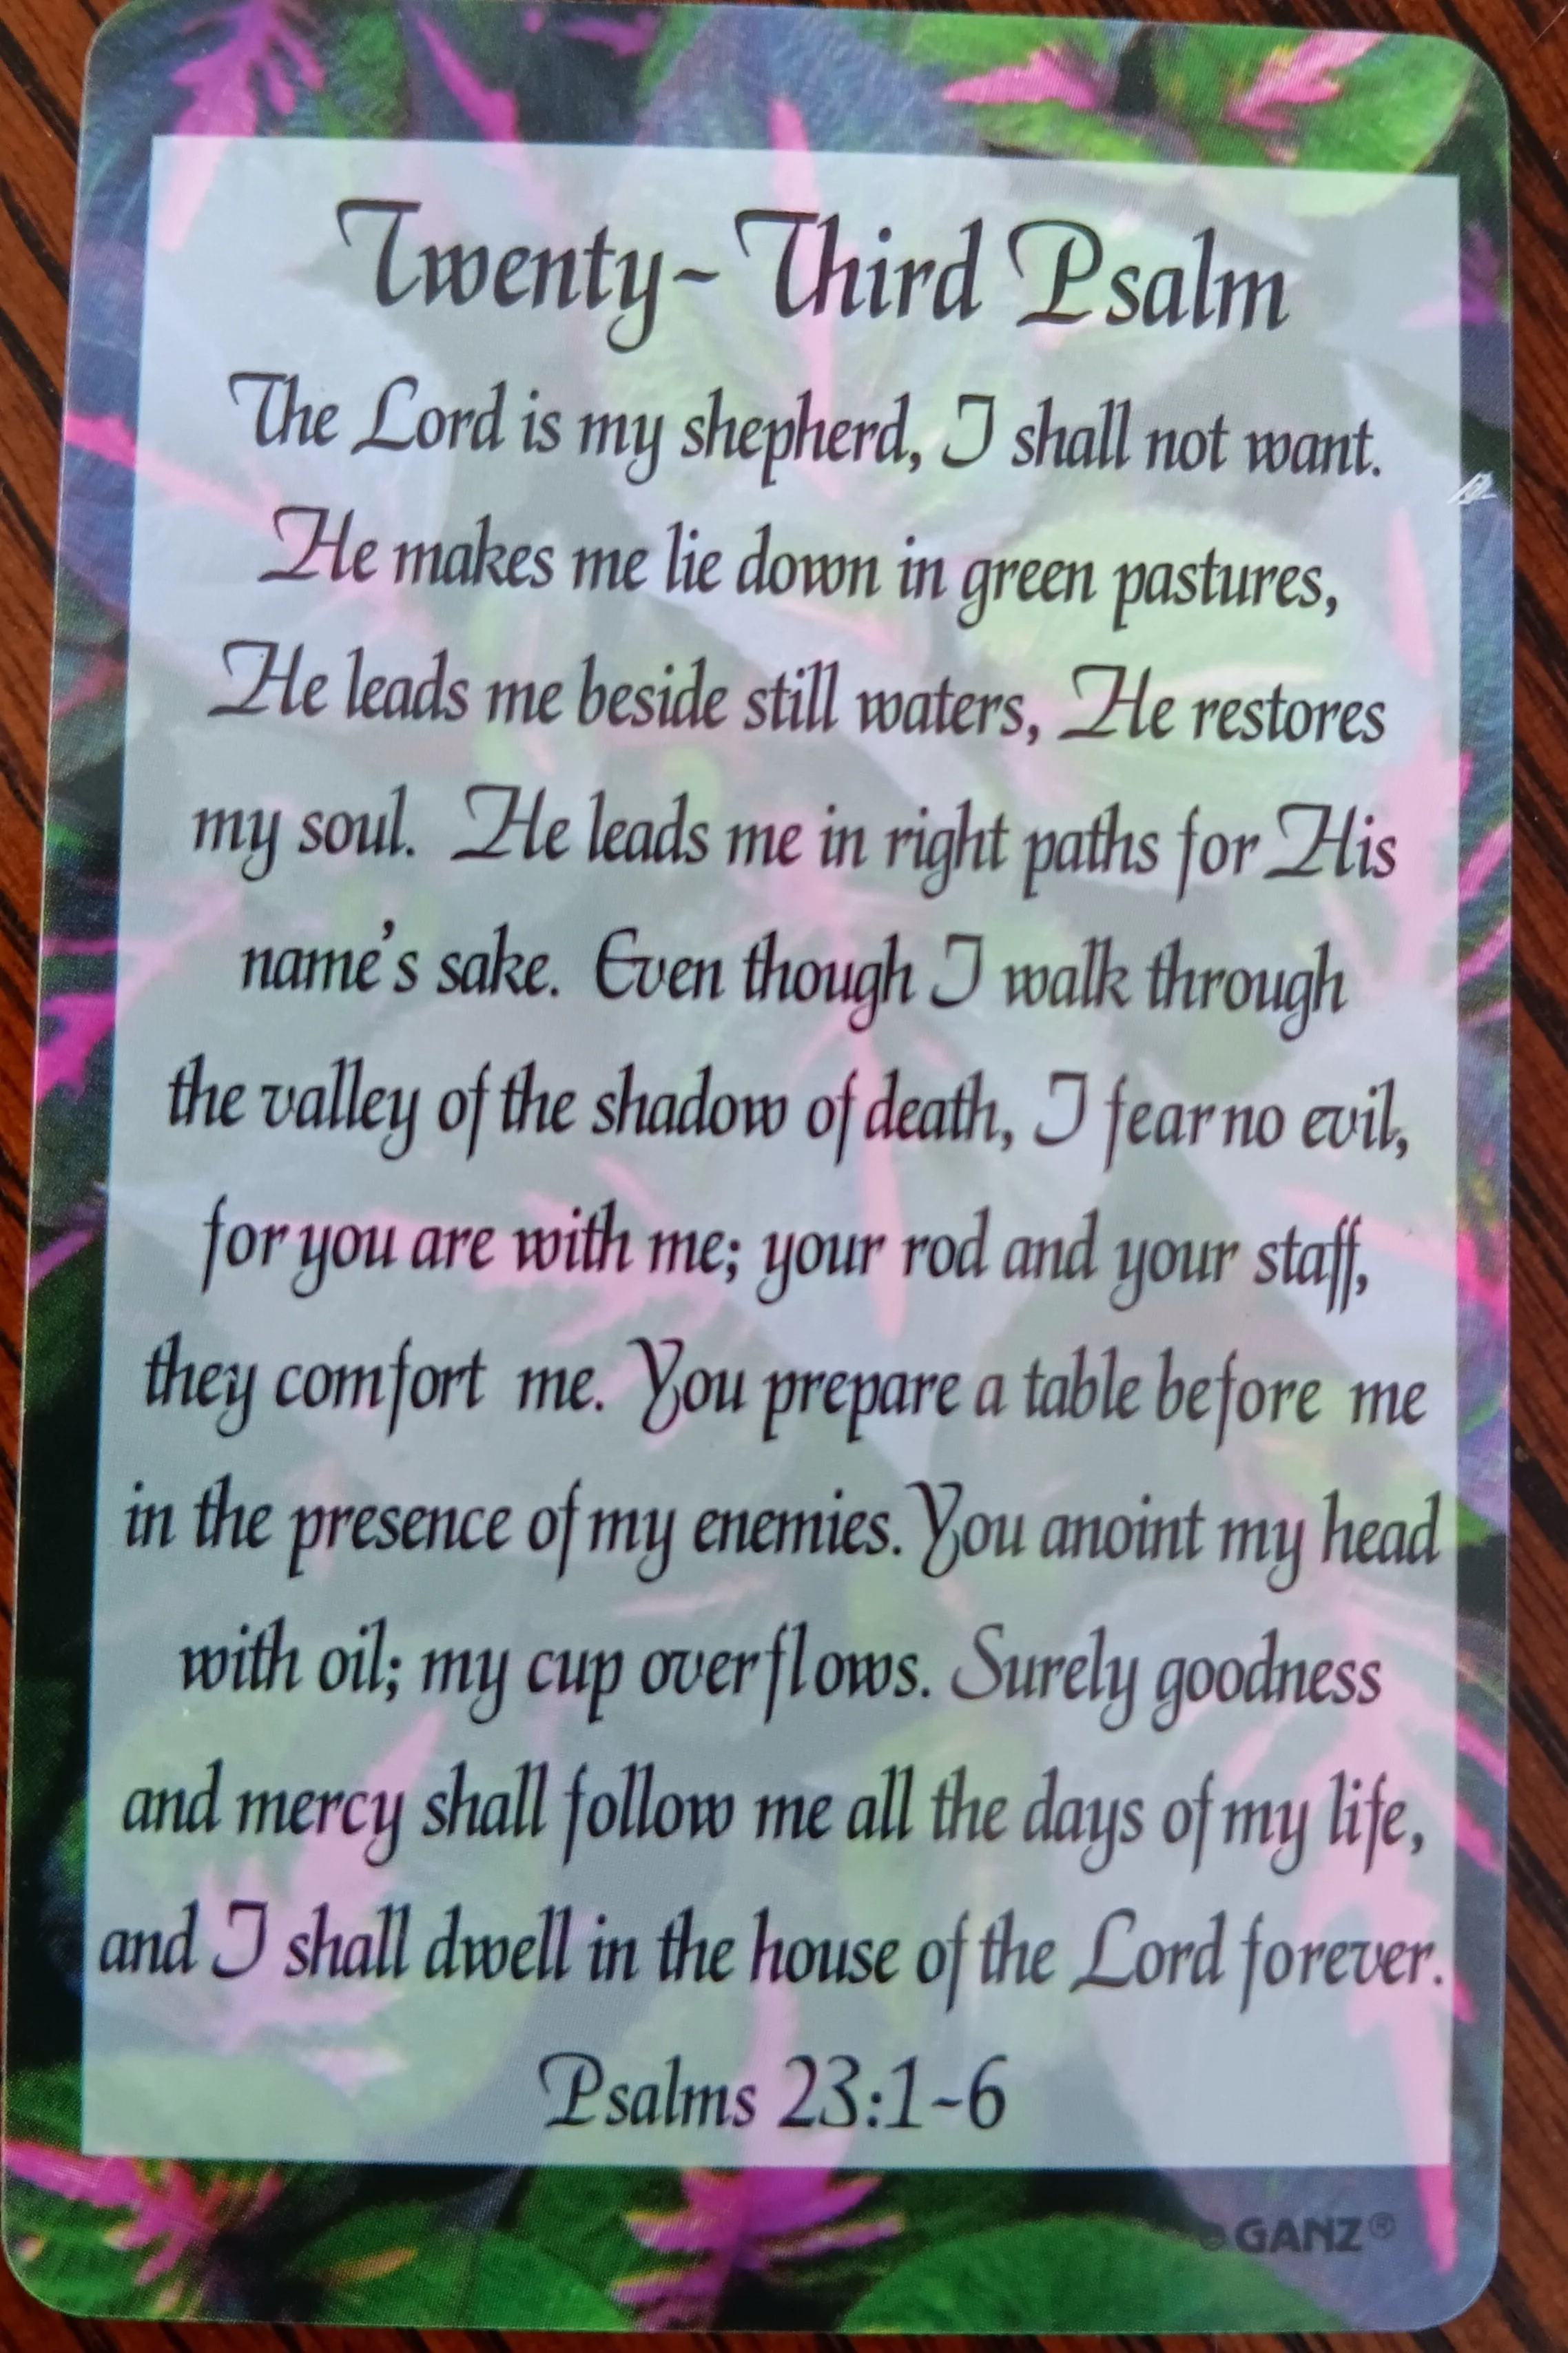 Twenty-Third Psalm
The Lord is my shepherd, I shall not want.
He makes me lie down in green pastures,
He leads me beside still waters, He restores
my soul. He leads me in right paths for His
name's sake. Even though I walk through
the valley of the shadow of death, I fear no evil,
for you are with me; your rod and your staff,
they comfort me. You prepare a table before me
in the presence of my enemies. You anoint my head
with oil; my cup overflows. Surely goodness
and mercy shall follow me all the days of my life,
and I shall dwell in the house of the Lord forever.
Psalms 23:1-6
© GANZ®